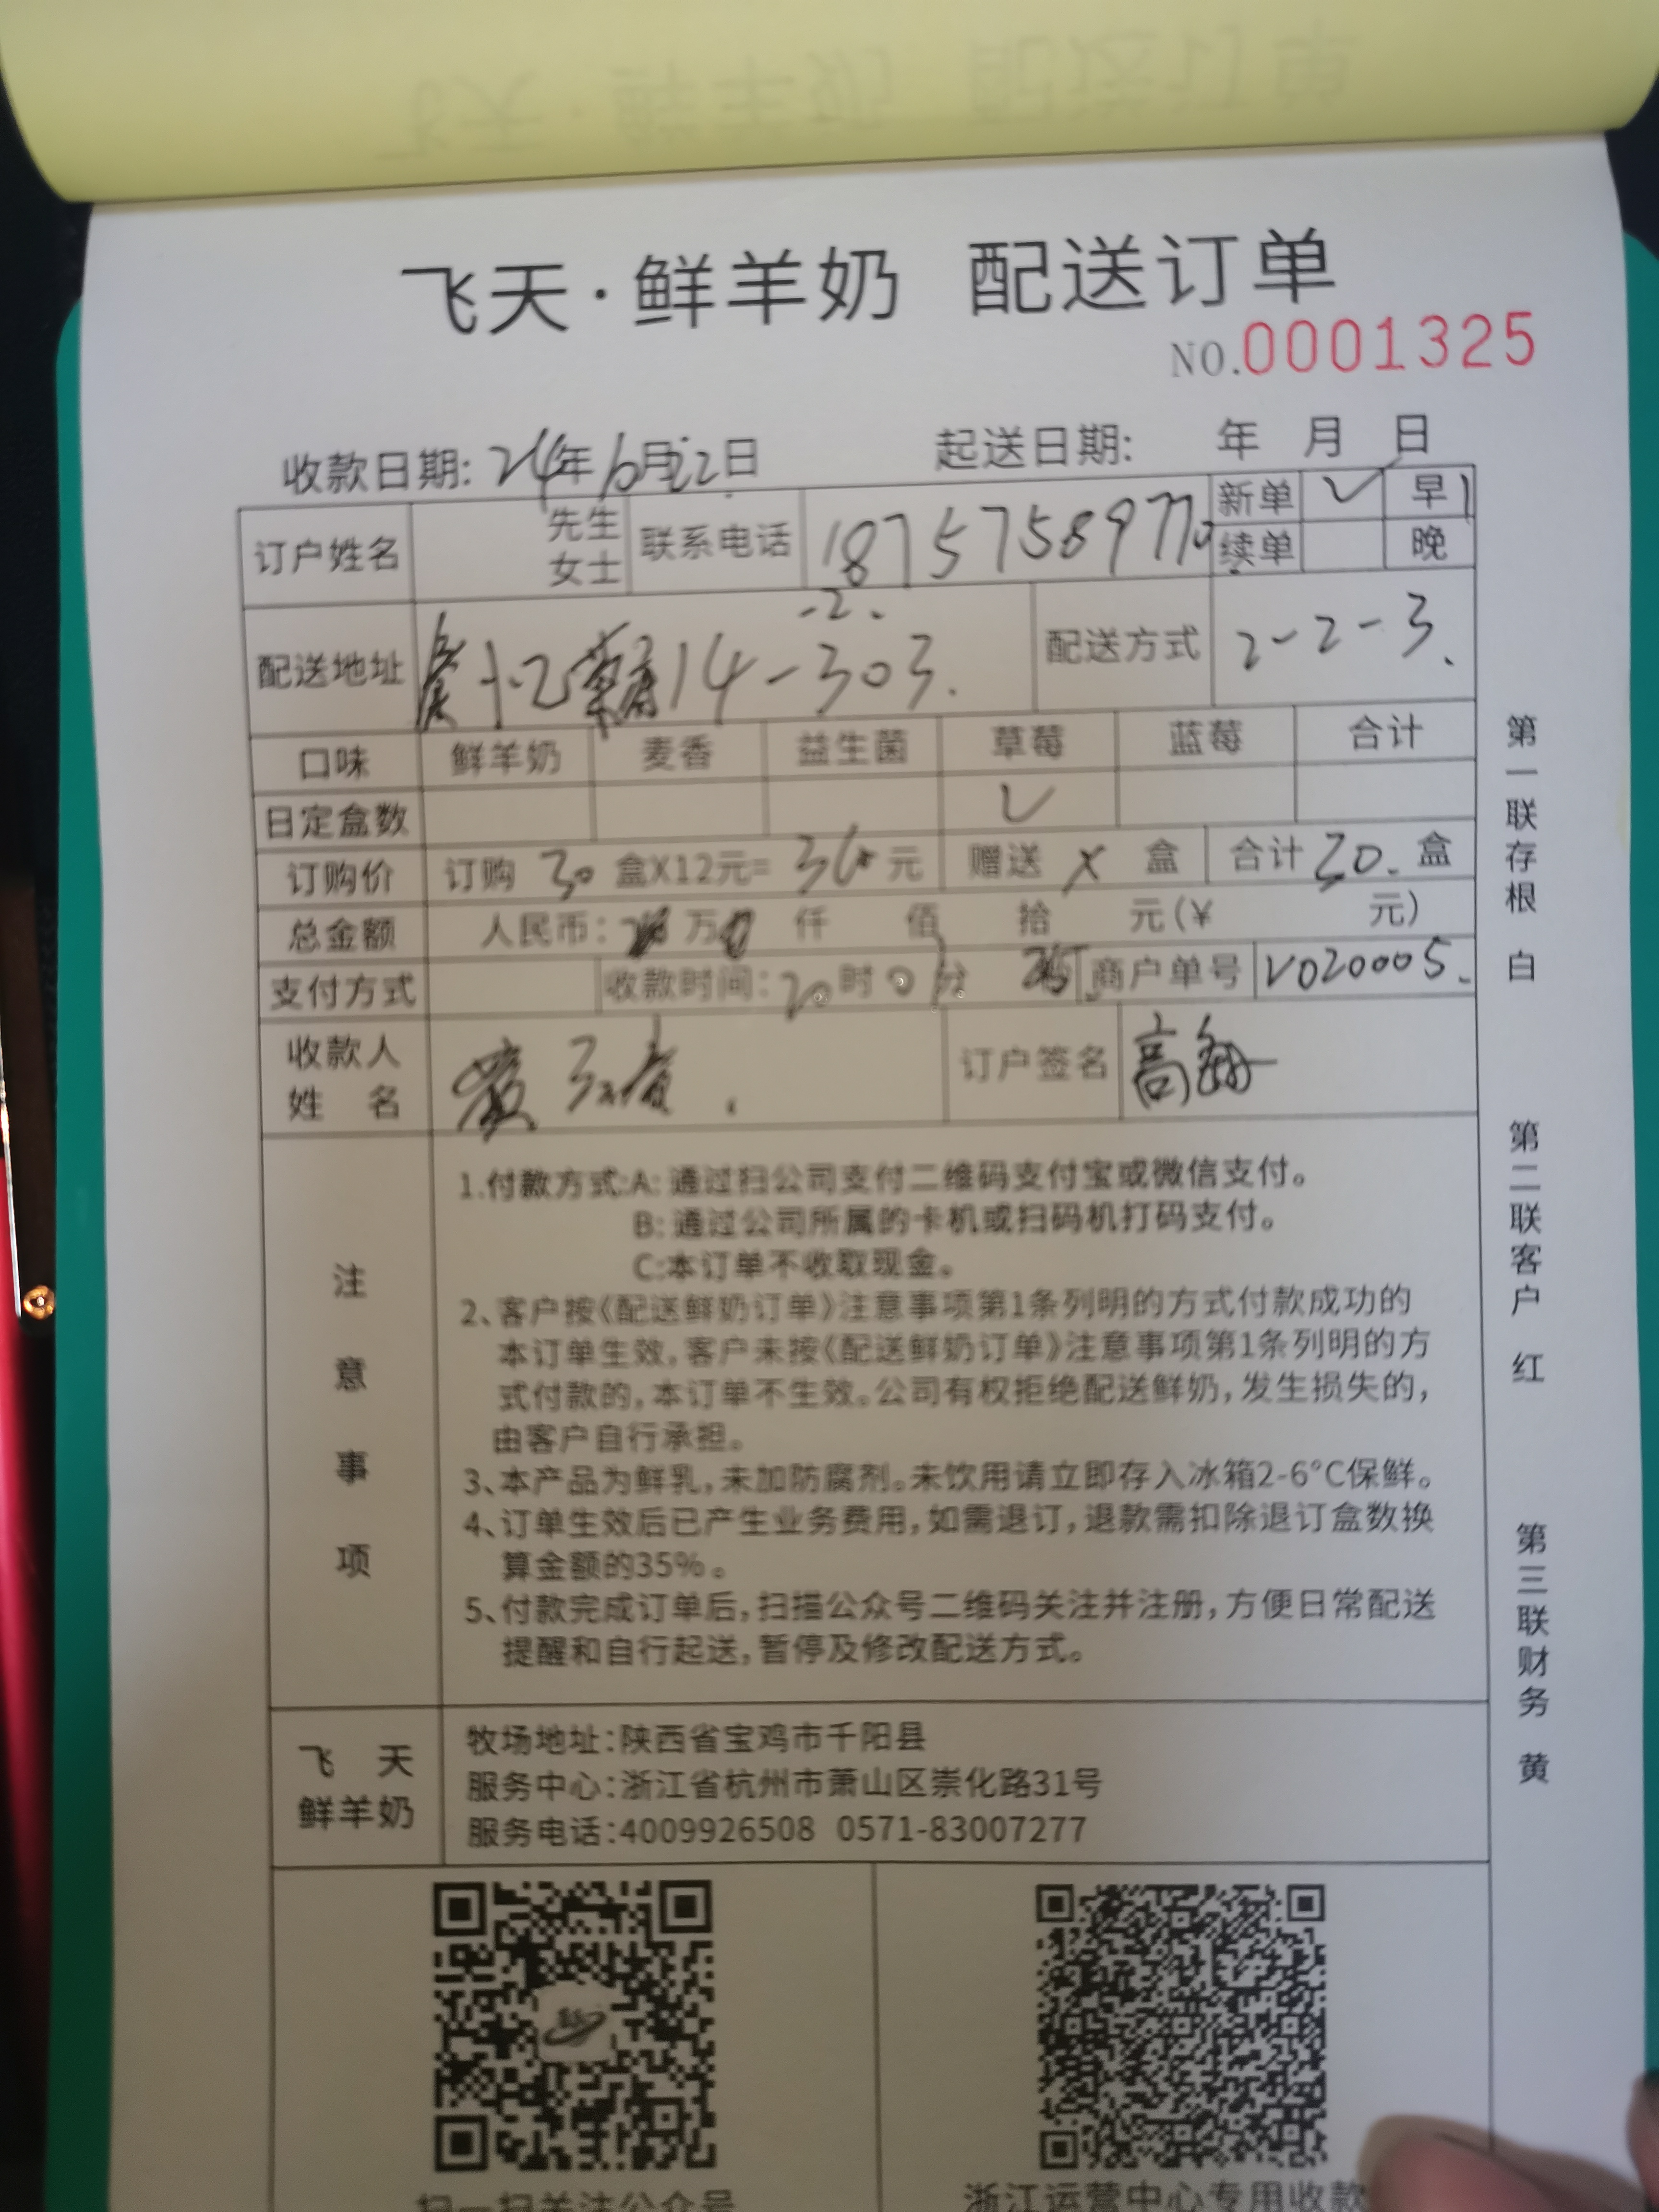 飞天·鲜羊奶 配送订单
NO.0001325
收款日期: 24年 月22日 起送日期: 年 月 日
订户姓名 先生 女士 联系电话 187575897 新单 ✓ 早
续单 晚
配送地址 14-2-303. 配送方式 2-2-3.
口味 鲜羊奶 麦香 益生菌 草莓 蓝莓 合计
日定盒数 ✓
订购价 订购 30 盒X12元= 360 元 赠送 X 盒 合计 30. 盒
总金额 人民币: 万 仟 佰 拾 元(¥ 元)
支付方式 收款时间: 20时0分 商户单号 V020005.
收款人
姓 名 订户签名 高
注意事项
1.付款方式:A: 通过扫公司支付二维码支付宝或微信支付。
B: 通过公司所属的卡机或扫码机打码支付。
C:本订单不收取现金。
2、客户按《配送鲜奶订单》注意事项第1条列明的方式付款成功的
本订单生效,客户未按《配送鲜奶订单》注意事项第1条列明的方
式付款的,本订单不生效。公司有权拒绝配送鲜奶,发生损失的,
由客户自行承担。
3、本产品为鲜乳,未加防腐剂。未饮用请立即存入冰箱2-6°C保鲜。
4、订单生效后已产生业务费用,如需退订,退款需扣除退订盒数换
算金额的35%。
5、付款完成订单后,扫描公众号二维码关注并注册,方便日常配送
提醒和自行起送,暂停及修改配送方式。
飞 天
鲜羊奶
牧场地址:陕西省宝鸡市千阳县
服务中心:浙江省杭州市萧山区崇化路31号
服务电话:4009926508 0571-83007277
扫一扫关注公众号
浙江运营中心专用收款
第一联存根 白
第二联客户 红
第三联财务 黄